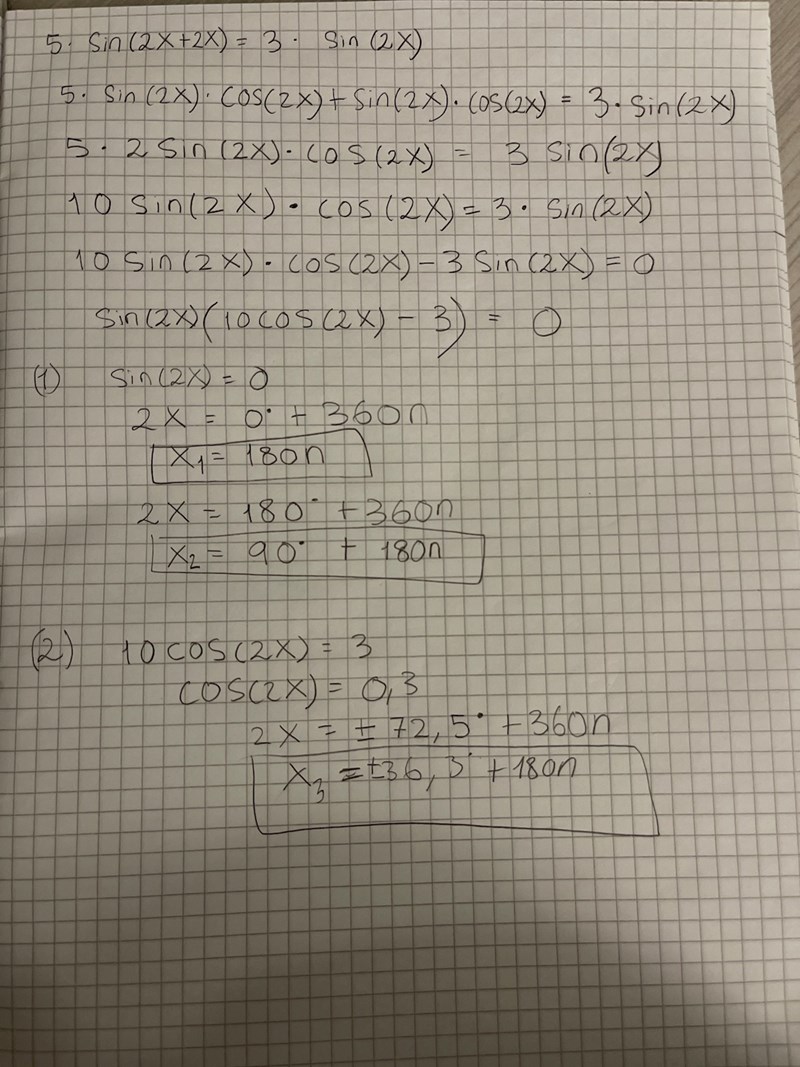 5· sin(2x+2x) = 3· sin(2x)
5· sin(2x)· cos(2x) + sin(2x)· cos(2x) = 3·sin(2x)
5· 2 sin(2x)· cos(2x) = 3 sin(2x)
10 sin(2x)· cos(2x) = 3· sin(2x)
10 sin(2x)· cos(2x) - 3 sin(2x) = 0
sin(2x)(10cos(2x) - 3) = 0
(1) sin(2x) = 0
2x = 0° + 360n
x₁ = 180n
2x = 180° + 360n
x₂ = 90° + 180n
(2) 10 cos(2x) = 3
cos(2x) = 0,3
2x = ± 72,5° + 360n
x₃ = ±36,3° + 180n